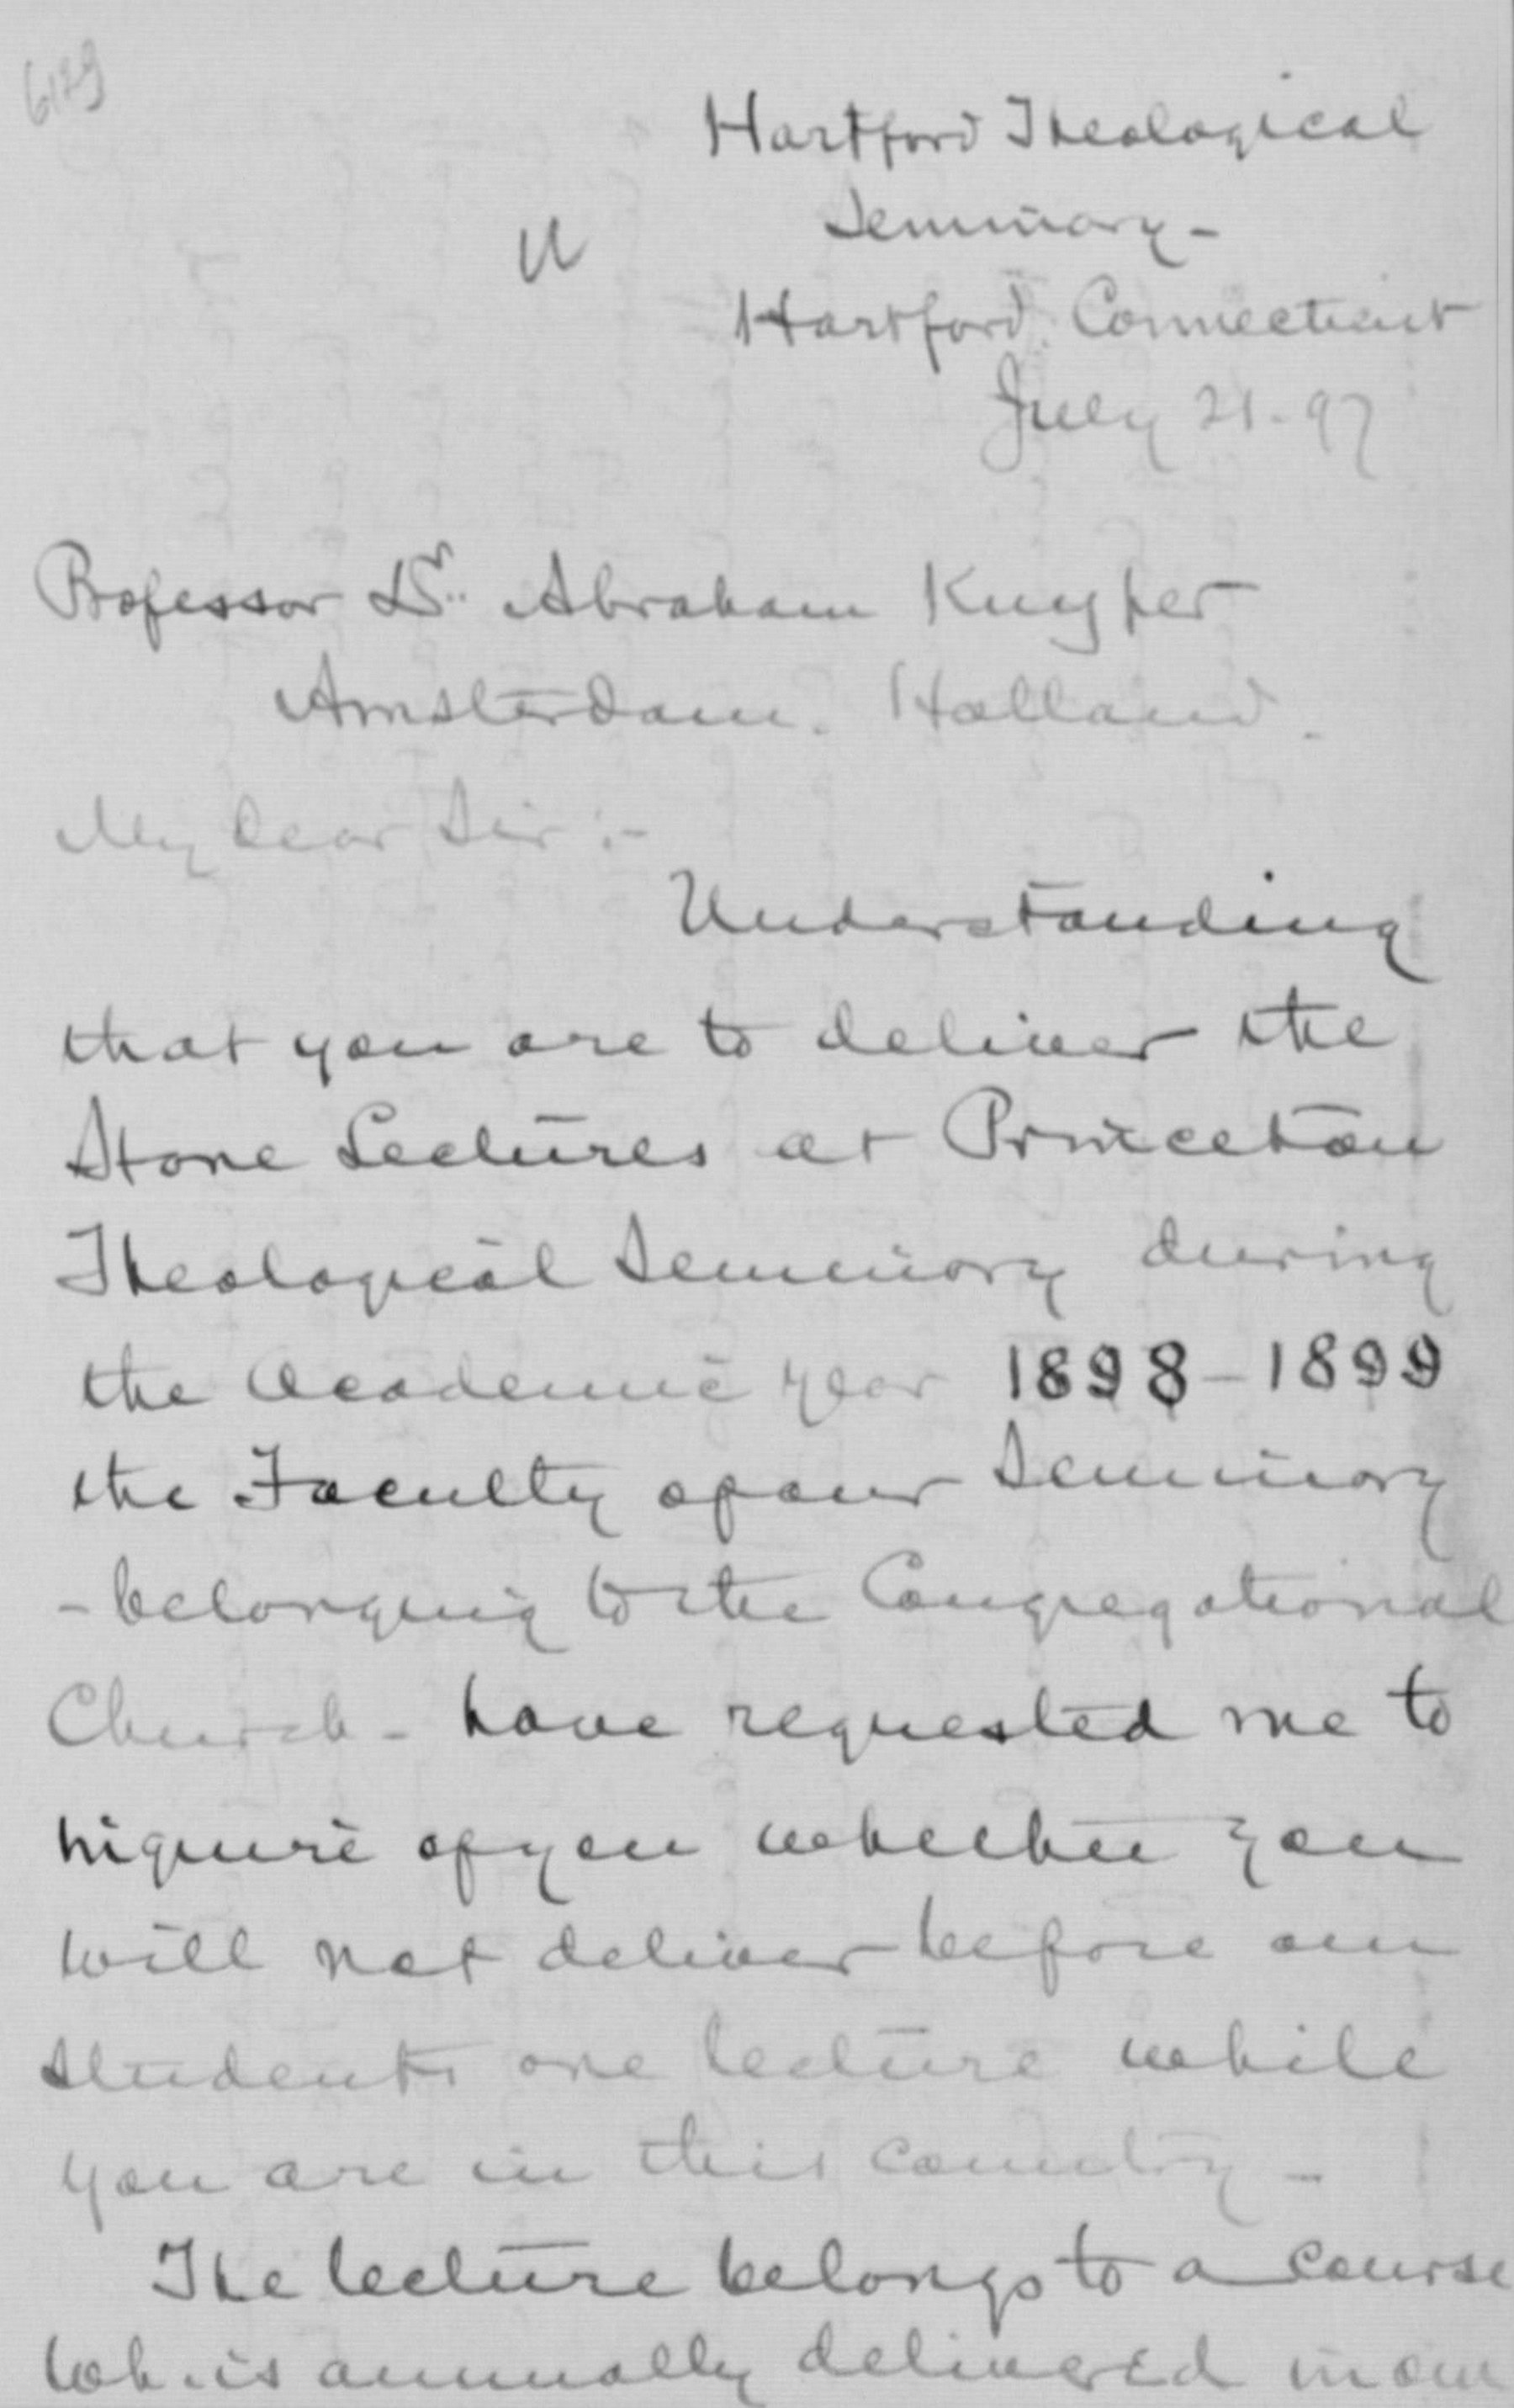 6129
Hartford Theological
Seminary -
Hartford. Connecticut
July 21-97
Professor Dr. Abraham Kuyper
Amsterdam. Holland.
My Dear Sir :-
Understanding
that you are to deliver the
Stone Lectures at Princeton
Theological Seminary during
the Academic year 1898-1899
the Faculty of our Seminary
- belonging to the Congregational
Church - have requested me to
inquire of you whether you
will not deliver before our
students one lecture while
you are in this country -
The lecture belongs to a course
wh. is annually delivered in our